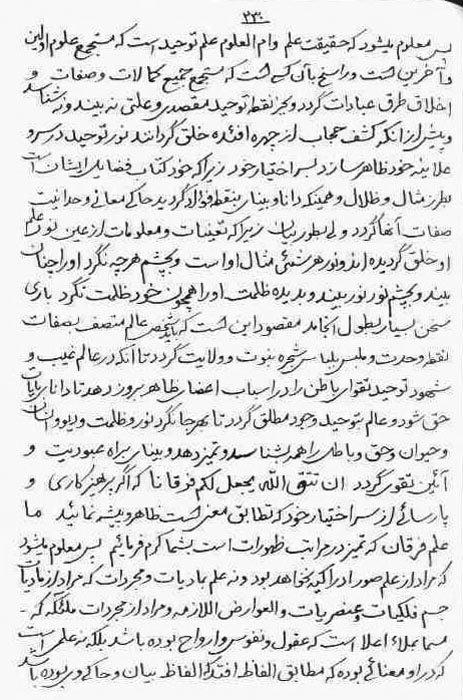 ۲۳۰
پس معلوم میشود که حقیقت علم و ام العلوم علم توحید است که مستجمع علوم اولین
و آخرین است و راسخ بآن کسی است که مستجمع جمیع کمالات و صفات و
اخلاق طرق عبادات گردد و بجز نقطه توحید مقصدی و علتی نه بیند و نه شناسد
و پیش از آنکه کشف حجاب از چهره افئده خلق گردانند نور توحید در سر و
علانیه خود ظاهر سازد بسر اختیار خود زیرا که خود کتاب فضایل ایشان است
بطرز مثال و ظلال و همینکه دانا و بینای بنقطه فؤاد گردید حاکی معانی وحدانیت
صفات آنها گردد و لی بطور بیان زیرا که تعینات و معلومات از عین نور علم
او خلق گردیده اند و نور هر شیئی مثال او است و بچشم هر چه نگرد او را چنان
بیند و بچشم نور نور بیند و بدیده ظلمت او را همچون خود ظلمت نگرد باری
سخن بسیار بطول انجامد مقصود این است که باید شخص عالم متصف بصفات
نقطه وحدت و ملبس بلباس شجره نبوت و ولایت گردد تا آنکه در عالم غیب و
شهود توحید تقوای باطن را در اسباب اعضای ظاهر بروز دهد تا دانا بآیات
حق شود و عالم بتوحید وجود مطلق گردد تا بهر جا نگرد نور و ظلمت و دیو و انسان
و حیوان و حق و باطل را همه بشناسد و تمیز دهد و بینای براه عبودیت و
آئین تقوی گردد ان تتقی الله یجعل لکم فرقانا که اگر پرهیزکاری و
پارسائی از سر اختیار خود که تطابق معنی است ظاهر و پیشه نمائید ما
علم فرقان که تمیز در مراتب ظهورات است بشما کرم فرمائیم پس معلوم میشود
که مراد از علم صور ادراکیه نخواهد بود و نه علم بمادیات و مجردات که مراد از مادیات
جسم فلکیات و عنصریات و العوارض اللازمه و مراد از مجردات ملائکه که
مسما بملاء اعلا است که عقول و نفوس و ارواح بوده باشد بلکه نه علمی است
که در او معنائی بوده که مطابق الفاظ افتد که الفاظ بیان و حاکی وی بوده باشد